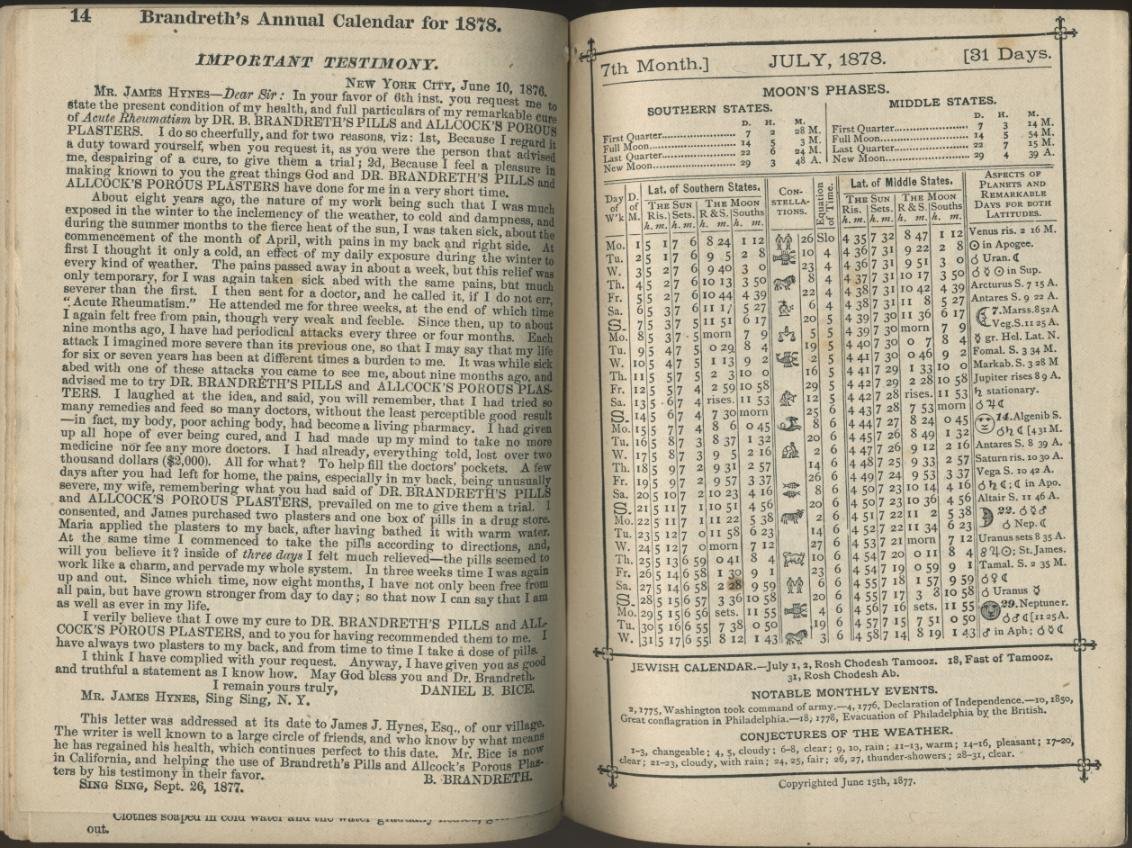 14 Brandreth's Annual Calendar for 1878.
IMPORTANT TESTIMONY.
NEW YORK CITY, June 10, 1876.
MR. JAMES HYNES—Dear Sir: In your favor of 6th inst. you request me to
state the present condition of my health, and full particulars of my remarkable cure
of Acute Rheumatism by DR. B. BRANDRETH'S PILLS and ALLCOCK'S POROUS
PLASTERS. I do so cheerfully, and for two reasons, viz: 1st, Because I regard it
a duty toward yourself, when you request it, as you were the person that advised
me, despairing of a cure, to give them a trial; 2d, Because I feel a pleasure in
making known to you the great things God and DR. BRANDRETH'S PILLS and
ALLCOCK'S POROUS PLASTERS have done for me in a very short time.
About eight years ago, the nature of my work being such that I was much
exposed in the winter to the inclemency of the weather, to cold and dampness, and
during the summer months to the fierce heat of the sun, I was taken sick, about the
commencement of the month of April, with pains in my back and right side. At
first I thought it only a cold, an effect of my daily exposure during the winter to
every kind of weather. The pains passed away in about a week, but this relief was
only temporary, for I was again taken sick abed with the same pains, but much
severer than the first. I then sent for a doctor, and he called it, if I do not err,
"Acute Rheumatism." He attended me for three weeks, at the end of which time
I again felt free from pain, though very weak and feeble. Since then, up to about
nine months ago, I have had periodical attacks every three or four months. Each
attack I imagined more severe than its previous one, so that I may say that my life
for six or seven years has been at different times a burden to me. It was while sick
abed with one of these attacks you came to see me, about nine months ago, and
advised me to try DR. BRANDRETH'S PILLS and ALLCOCK'S POROUS PLAS-
TERS. I laughed at the idea, and said, you will remember, that I had tried so
many remedies and feed so many doctors, without the least perceptible good result
—in fact, my body, poor aching body, had become a living pharmacy. I had given
up all hope of ever being cured, and I had made up my mind to take no more
medicine nor fee any more doctors. I had already, everything told, lost over two
thousand dollars ($2,000). All for what? To help fill the doctors' pockets. A few
days after you had left for home, the pains, especially in my back, being unusually
severe, my wife, remembering what you had said of DR. BRANDRETH'S PILLS
and ALLCOCK'S POROUS PLASTERS, prevailed on me to give them a trial. I
consented, and James purchased two plasters and one box of pills in a drug store.
Maria applied the plasters to my back, after having bathed it with warm water.
At the same time I commenced to take the pills according to directions, and,
will you believe it? inside of three days I felt much relieved—the pills seemed to
work like a charm, and pervade my whole system. In three weeks time I was again
up and out. Since which time, now eight months, I have not only been free from
all pain, but have grown stronger from day to day; so that now I can say that I am
as well as ever in my life.
I verily believe that I owe my cure to DR. BRANDRETH'S PILLS and ALL-
COCK'S POROUS PLASTERS, and to you for having recommended them to me. I
have always two plasters to my back, and from time to time I take a dose of pills.
I think I have complied with your request. Anyway, I have given you as good
and truthful a statement as I know how. May God bless you and Dr. Brandreth.
I remain yours truly, DANIEL B. BICE.
MR. JAMES HYNES, Sing Sing, N. Y.
This letter was addressed at its date to James J. Hynes, Esq., of our village.
The writer is well known to a large circle of friends, and who know by what means
he has regained his health, which continues perfect to this date. Mr. Bice is now
in California, and helping the use of Brandreth's Pills and Allcock's Porous Plas-
ters by his testimony in their favor. B. BRANDRETH.
SING SING, Sept. 26, 1877.
Clothes soaped in cold water and the water gradually
out.
7th Month.] JULY, 1878. [31 Days.
MOON'S PHASES.
SOUTHERN STATES.
D. H. M.
First Quarter 7 2 28 M.
Full Moon 14 5 3 M.
Last Quarter 22 6 24 M.
New Moon 29 3 48 A.
MIDDLE STATES.
D. H. M.
First Quarter 7 3 14 M.
Full Moon 14 5 54 M.
Last Quarter 22 7 15 M.
New Moon 29 4 39 A.
Day of W'k
D. of M.
Lat. of Southern States.
THE SUN THE MOON
Ris. Sets. R & S. Souths
h. m. h. m. h. m. h. m.
CON-STELLA-TIONS.
Equation of Time.
Lat. of Middle States.
THE SUN THE MOON
Ris. Sets. R & S. Souths
h. m. h. m. h. m. h. m.
ASPECTS OF
PLANETS AND
REMARKABLE
DAYS FOR BOTH
LATITUDES.
Mo. 1 5 1 7 6 8 24 1 12 26 Slo 4 35 7 32 8 47 1 12 Venus ris. 2 16 M.
Tu. 2 5 1 7 6 9 5 2 8 10 4 4 36 7 31 9 22 2 8 ☉ in Apogee.
W. 3 5 1 7 6 9 40 3 0 23 4 4 36 7 31 9 51 3 0 ☌ Uran. ☾
Th. 4 5 2 7 6 10 13 3 50 8 4 4 37 7 31 10 17 3 50 ☌ ☿ ☉ in Sup.
Fr. 5 5 2 7 6 10 44 4 39 22 4 4 38 7 31 10 42 4 39 Arcturus S. 7 15 A.
Sa. 6 5 3 7 6 11 17 5 27 6 4 4 38 7 31 11 8 5 27 Antares S. 9 22 A.
S. 7 5 3 7 5 11 51 6 17 20 5 4 39 7 30 11 36 6 17 ☾ 7. Mars s. 8 52 A
Mo. 8 5 3 7 5 morn 7 9 5 5 4 39 7 30 morn 7 9 Veg. S. 11 25 A.
Tu. 9 5 4 7 5 0 29 8 4 19 5 4 40 7 30 0 7 8 4 ☿ gr. Hel. Lat. N.
W. 10 5 4 7 5 1 13 9 2 2 5 4 41 7 30 0 46 9 2 Fomal. S. 3 34 M.
Th. 11 5 5 7 5 2 3 10 0 16 5 4 41 7 29 1 33 10 0 Markab. S. 3 28 M
Fr. 12 5 5 7 4 2 59 10 58 29 5 4 42 7 29 2 28 10 58 Jupiter rises 8 9 A.
Sa. 13 5 6 7 4 rises. 11 53 12 5 4 42 7 28 rises. 11 53 ♄ stationary.
S. 14 5 6 7 4 7 30 morn 25 6 4 43 7 28 7 53 morn ☌ ♃ ☾
Mo. 15 5 7 7 4 8 6 0 45 8 6 4 44 7 27 8 24 0 45 14. Algenib S.
Tu. 16 5 8 7 3 8 37 1 32 20 6 4 45 7 26 8 49 1 32 ☌ ♄ ☾ [4 31 M.
W. 17 5 8 7 3 9 5 2 16 2 6 4 47 7 26 9 12 2 16 Antares S. 8 39 A.
Th. 18 5 9 7 2 9 31 2 57 14 6 4 48 7 25 9 33 2 57 Saturn ris. 10 30 A.
Fr. 19 5 9 7 2 9 57 3 37 26 6 4 49 7 24 9 53 3 37 Vega S. 10 42 A.
Sa. 20 5 10 7 2 10 23 4 16 8 6 4 50 7 23 10 14 4 16 ☌ ♄ ☾; ☾ in Apo.
S. 21 5 11 7 1 10 51 4 56 20 6 4 50 7 23 10 36 4 56 Altair S. 11 46 A.
Mo. 22 5 11 7 1 11 22 5 38 2 6 4 51 7 22 11 2 5 38 22. ☌ ☿ ♂
Tu. 23 5 12 7 0 11 58 6 23 14 6 4 52 7 22 11 34 6 23 ☌ Nep. ☾
W. 24 5 12 7 0 morn 7 12 27 6 4 53 7 21 morn 7 12 Uranus sets 8 35 A.
Th. 25 5 13 6 59 0 41 8 4 10 6 4 54 7 20 0 11 8 4 ☍ ♃ ☉; St. James.
Fr. 26 5 14 6 58 1 30 9 1 23 6 4 54 7 19 0 59 9 1 Tamal. S. 2 35 M.
Sa. 27 5 14 6 58 2 28 9 59 6 6 4 55 7 18 1 57 9 59 ☌ ♀ ☾
S. 28 5 15 6 57 3 36 10 58 20 6 4 55 7 17 3 8 10 58 ☌ Uranus ☿
Mo. 29 5 15 6 56 sets. 11 55 4 6 4 56 7 16 sets. 11 55 29. Neptune r.
Tu. 30 5 16 6 55 7 38 0 50 19 6 4 57 7 15 7 51 0 50 ☌ ♂ ☾ [11 25 A.
W. 31 5 17 6 55 8 12 1 43 3 6 4 58 7 14 8 19 1 43 ♂ in Aph; ☌ ☿ ☾
JEWISH CALENDAR.—July 1, 2, Rosh Chodesh Tamooz. 18, Fast of Tamooz.
31, Rosh Chodesh Ab.
NOTABLE MONTHLY EVENTS.
2, 1775, Washington took command of army.—4, 1776, Declaration of Independence.—10, 1850,
Great conflagration in Philadelphia.—18, 1778, Evacuation of Philadelphia by the British.
CONJECTURES OF THE WEATHER.
1-3, changeable; 4, 5, cloudy; 6-8, clear; 9, 10, rain; 11-13, warm; 14-16, pleasant; 17-20,
clear; 21-23, cloudy, with rain; 24, 25, fair; 26, 27, thunder-showers; 28-31, clear.
Copyrighted June 15th, 1877.